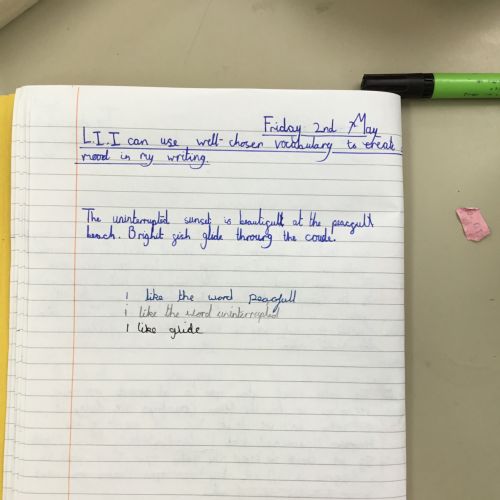 Friday 2nd May
L.I. I can use well-chosen vocabulary to creat
mood in my writing.
The uninterrupted sunset is beautifull at the peacfull
beach. Bright fish glide throurg the corele.
i like the word peacfull
i like the word uninterrupted
I like glide